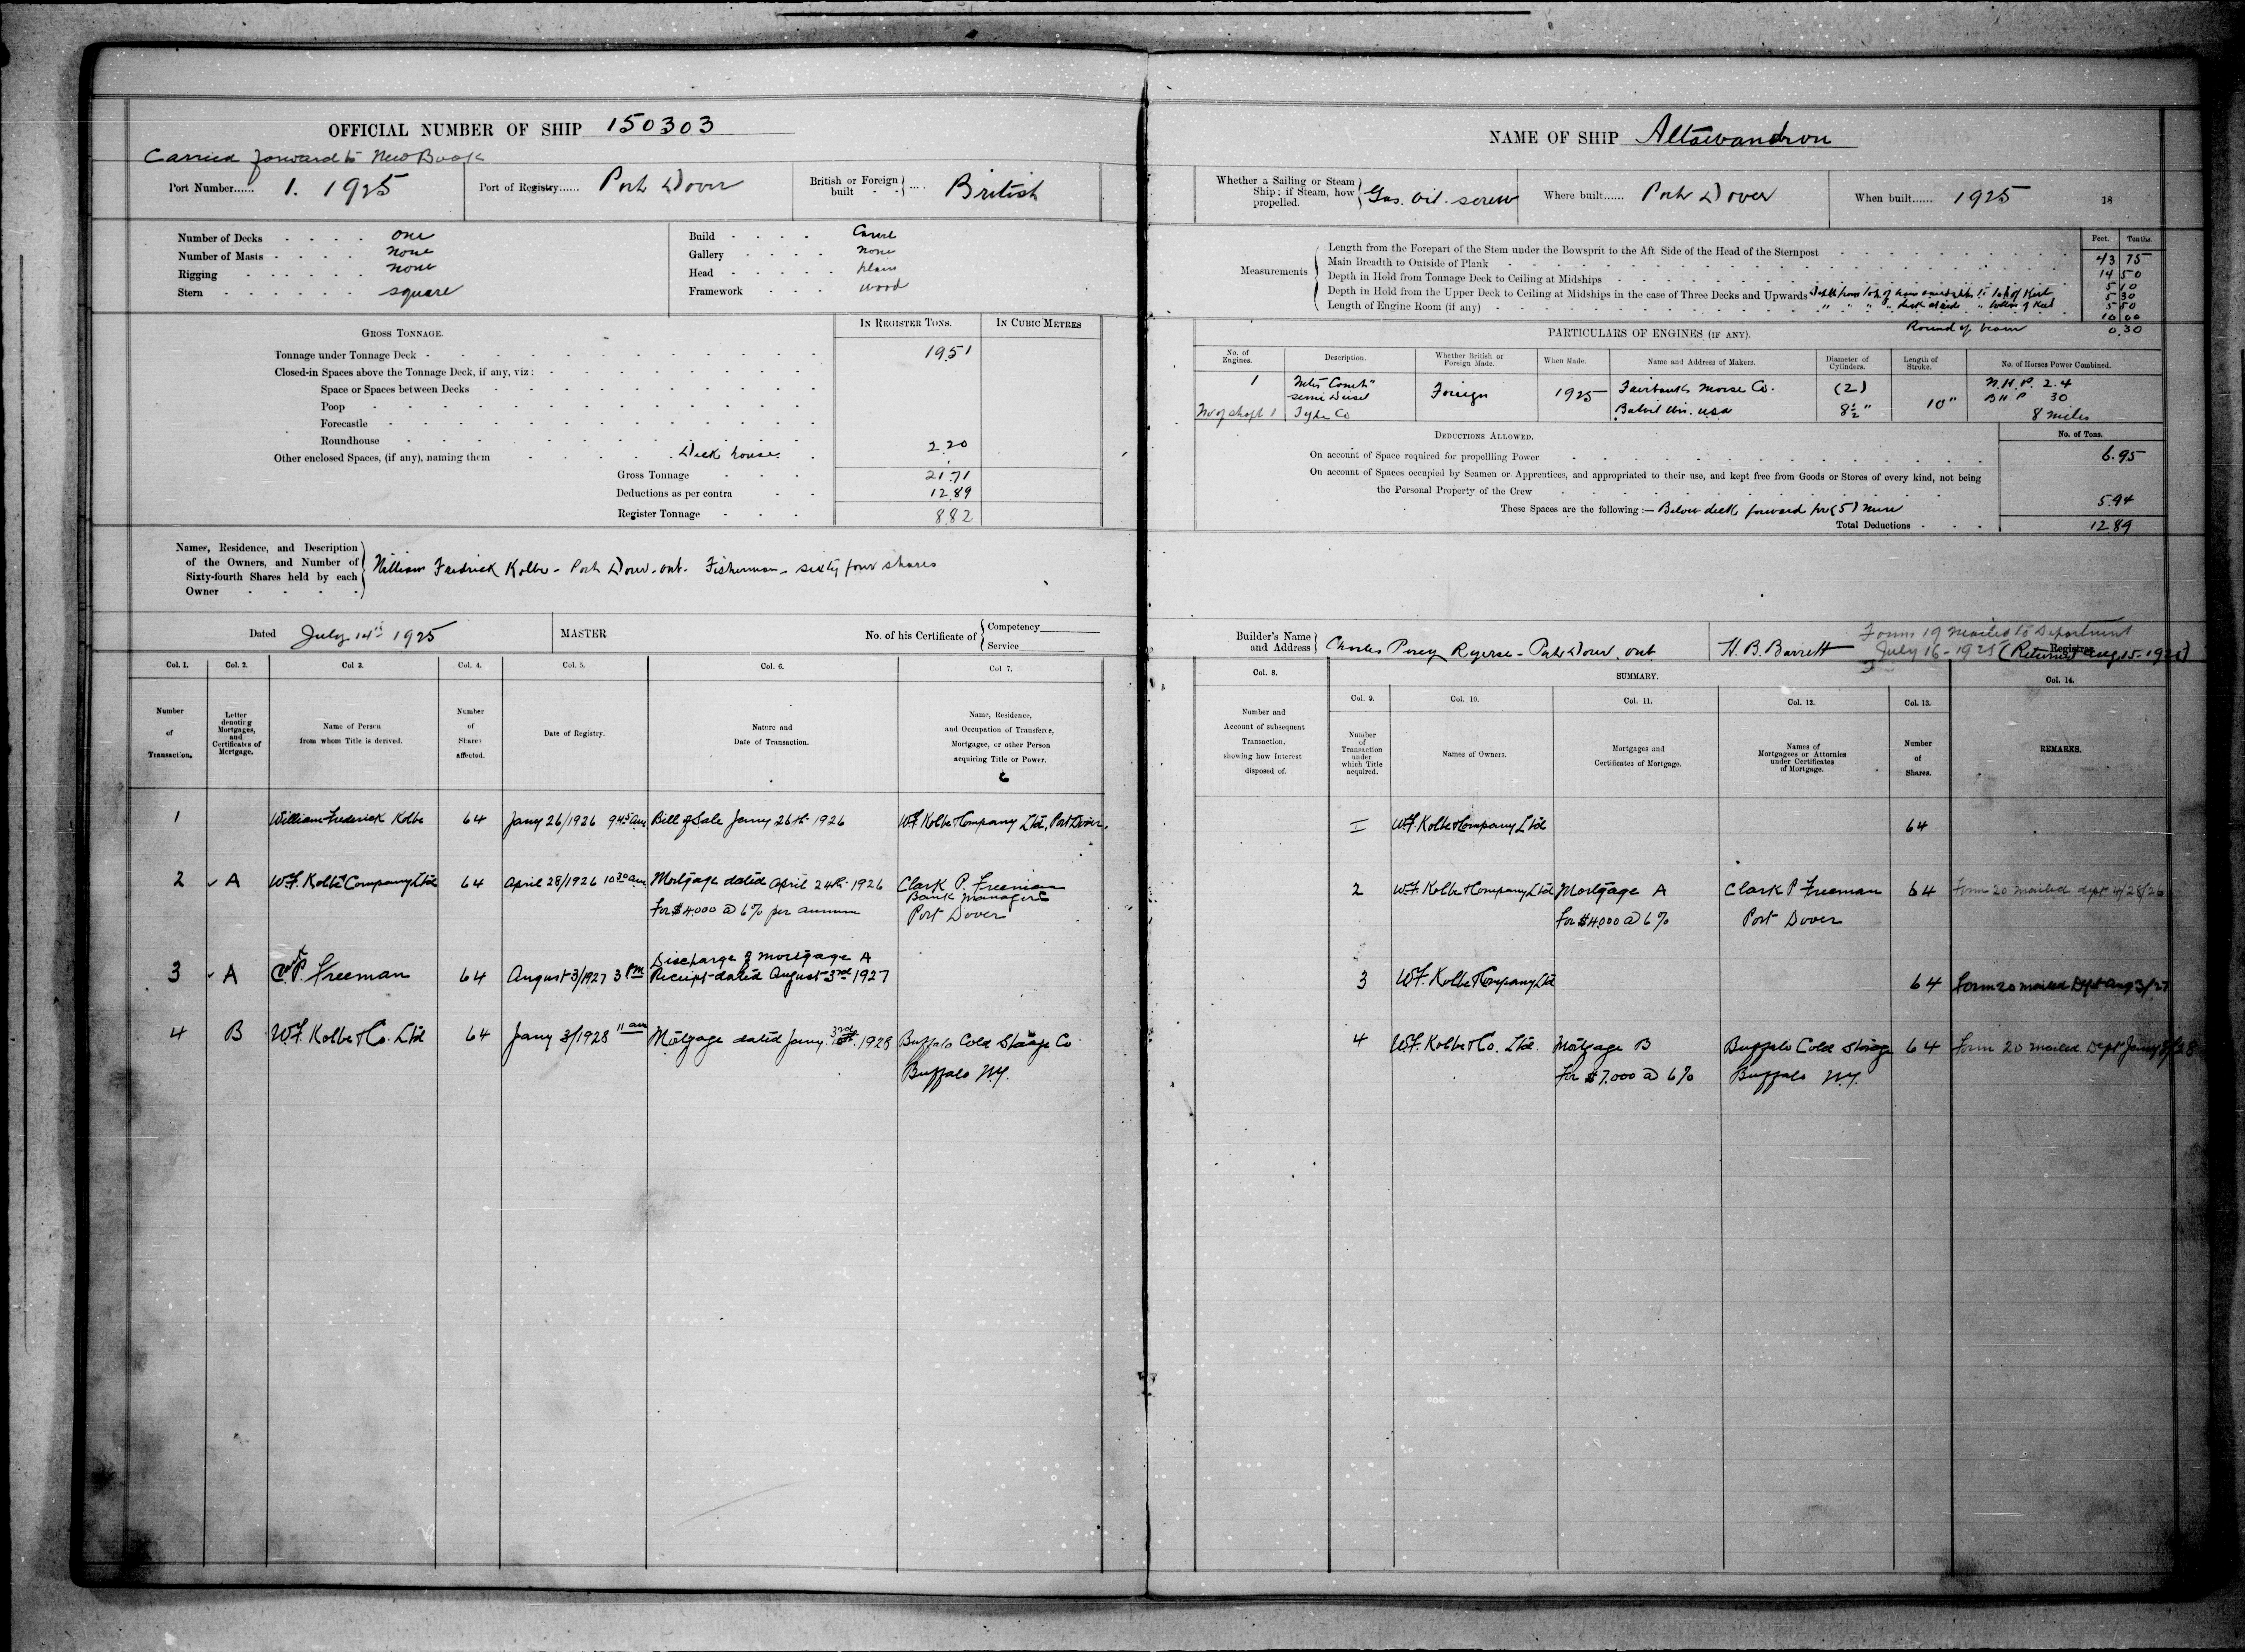 OFFICIAL NUMBER OF SHIP 150303
Carried forward to New Book
Port Number...... 1. 1925
Port of Registry...... Port Dover
British or Foreign built .... British
Number of Decks one
Number of Masts none
Rigging none
Stern square
Build Carvel
Gallery none
Head plain
Framework wood
GROSS TONNAGE.
IN REGISTER TONS.
IN CUBIC METRES
Tonnage under Tonnage Deck 19.51
Closed-in Spaces above the Tonnage Deck, if any, viz:
Space or Spaces between Decks
Poop
Forecastle
Roundhouse
Other enclosed Spaces, (if any), naming them Deck house. 2.20
Gross Tonnage 21.71
Deductions as per contra 12.89
Register Tonnage 8.82
Names, Residence, and Description
of the Owners, and Number of
Sixty-fourth Shares held by each
Owner
William Fredrick Kolbe - Port Dover - Ont. Fisherman - sixty four shares
Dated July 14th 1925
MASTER
No. of his Certificate of
Competency
Service
Col. 1. Col. 2. Col 3. Col. 4. Col. 5. Col. 6. Col 7.
Number of Transaction.
Letter denoting Mortgages, and Certificates of Mortgage.
Name of Person from whom Title is derived.
Number of Shares affected.
Date of Registry.
Nature and Date of Transaction.
Name, Residence, and Occupation of Transferee, Mortgagee, or other Person acquiring Title or Power.
1 William Frederick Kolbe 64 Jany 26/1926 9 45 am Bill of Sale Jany 26th 1926 W.F. Kolbe & Company Ltd, Port Dover.
2 A W.F. Kolbe & Company Ltd 64 April 28/1926 10 30 am Mortgage dated April 24th 1926 Clark P. Freeman
Bank Manager
For $4000 @ 6% per annum Port Dover
Discharge of mortgage A
3 A C.P. Freeman 64 August 3/1927 3 PM Receipt dated August 3rd 1927
4 B W.F. Kolbe & Co. Ltd 64 Jany 3/1928 11 am Mortgage dated Jany. 3rd 1928 Buffalo Cold Storage Co
Buffalo N.Y.
NAME OF SHIP Attawandron
Whether a Sailing or Steam
Ship; if Steam, how
propelled.
Gas. Oil. screw
Where built...... Port Dover
When built...... 1925 18
Measurements
Feet. Tenths.
Length from the Forepart of the Stem under the Bowsprit to the Aft Side of the Head of the Sternpost 43 75
Main Breadth to Outside of Plank 14 50
Depth in Hold from Tonnage Deck to Ceiling at Midships 5 10
Depth in Hold from the Upper Deck to Ceiling at Midships in the case of Three Decks and Upwards Depth from top of beam amidships to top of Keel 5 30
" " " deck at side " bottom of Keel 5 50
Length of Engine Room (if any) 10 00
Round of beam 0.30
PARTICULARS OF ENGINES (IF ANY).
No. of Engines.
Description.
Whether British or Foreign Made.
When Made.
Name and Address of Makers.
Diameter of Cylinders.
Length of Stroke.
No. of Horses Power Combined.
1 Semi Diesel Foreign 1925 Fairbanks Morse Co. (2) N.H.P. 2.4
B H P 30
No of shaft 1 Type Co Beloit Wis. USA 8½" 10" 8 miles
DEDUCTIONS ALLOWED.
No. of Tons.
On account of Space required for propellling Power 6.95
On account of Spaces occupied by Seamen or Apprentices, and appropriated to their use, and kept free from Goods or Stores of every kind, not being
the Personal Property of the Crew 5.94
These Spaces are the following:— Below deck forward for (5) men
Total Deductions 12.89
Builder's Name and Address
Charles Percy Ryerse - Port Dover. Ont
H. B. Barrett
Registrar
Form 19 mailed to Department
July 16 - 1925 (Returned Aug. 15 - 1925)
Col. 8. SUMMARY. Col. 14.
Col. 9. Col. 10. Col. 11. Col. 12. Col. 13.
Number and Account of subsequent Transaction, showing how Interest disposed of.
Number of Transaction under which Title acquired.
Names of Owners.
Mortgages and Certificates of Mortgage.
Names of Mortgagees or Attornies under Certificates of Mortgage.
Number of Shares.
REMARKS.
I W.F. Kolbe & Company Ltd 64
2 W.F. Kolbe & Company Ltd Mortgage A Clark P Freeman 64 Form 20 mailed dept 4/28/26
For $4000 @ 6% Port Dover
3 W.F. Kolbe & Company Ltd 64 Form 20 mailed Dept Aug 3/27
4 W.F. Kolbe & Co. Ltd. Mortgage B Buffalo Cold Storage 64 Form 20 mailed Dept Jany 3/28
For $7.000 @ 6% Buffalo N.Y.